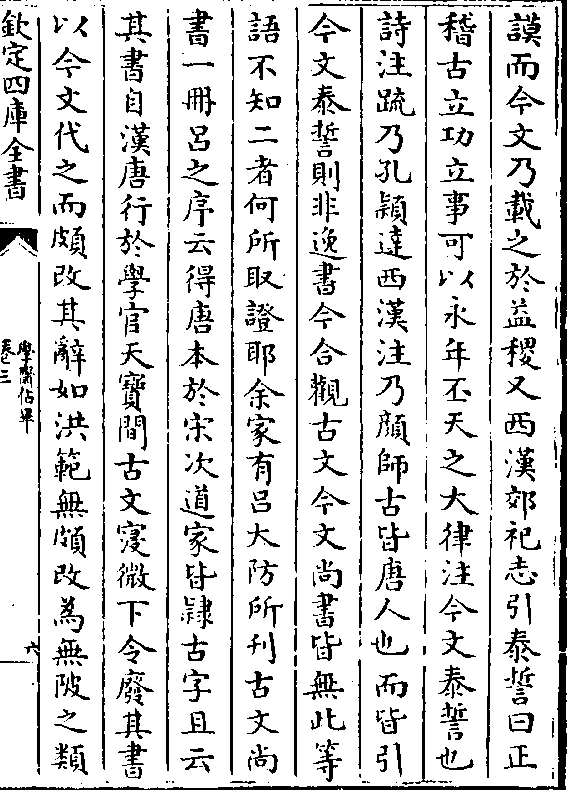 謨而今文乃載之於益稷又西漢郊祀志引泰誓曰正
稽古立功立事可以永年丕天之大律注今文泰誓也
詩注䟽乃孔頴達西漢注乃顔師古皆唐人也而皆引
今文泰誓則非逸書今合觀古文今文尚書皆無此等
語不知二者何所取證耶余家有吕大防所刋古文尚
書一冊吕之序云得唐本於宋次道家皆隷古字且云
其書自漢唐行於學官天寶間古文寖微下令廢其書
以今文代之而頗改其辭如洪範無頗改為無陂之類
欽定四庫全書
學齋佔畢
卷三
六